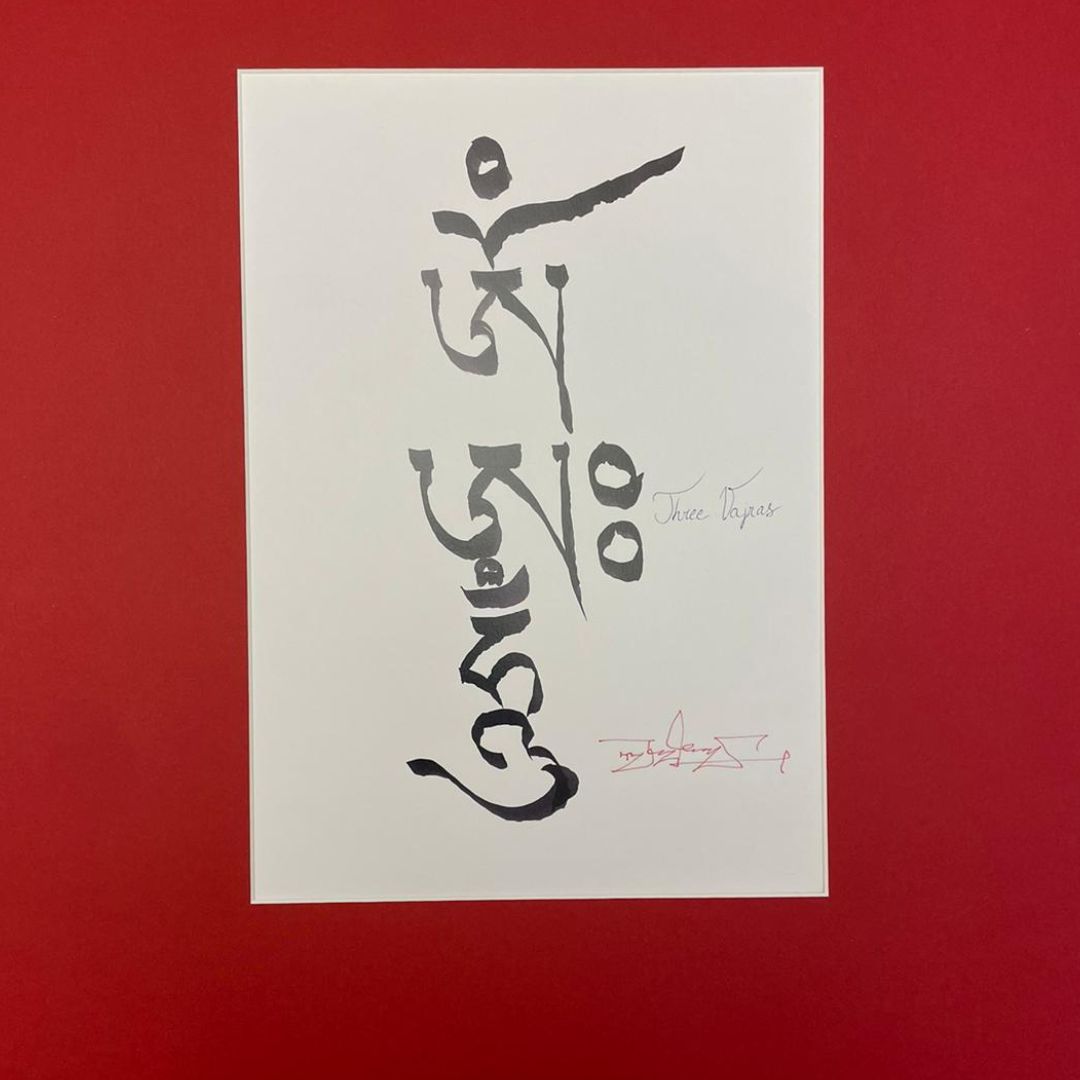 ཨོཾ
ཨཿ
ཧཱུྃ
Three Vajras